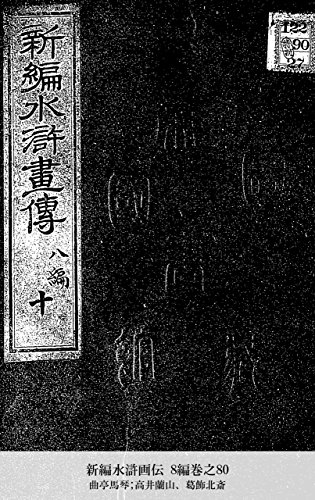 新編水滸畫傳
八編
十
122
90
37
新編水滸画伝 8編巻之80
曲亭馬琴;高井蘭山、葛飾北斎